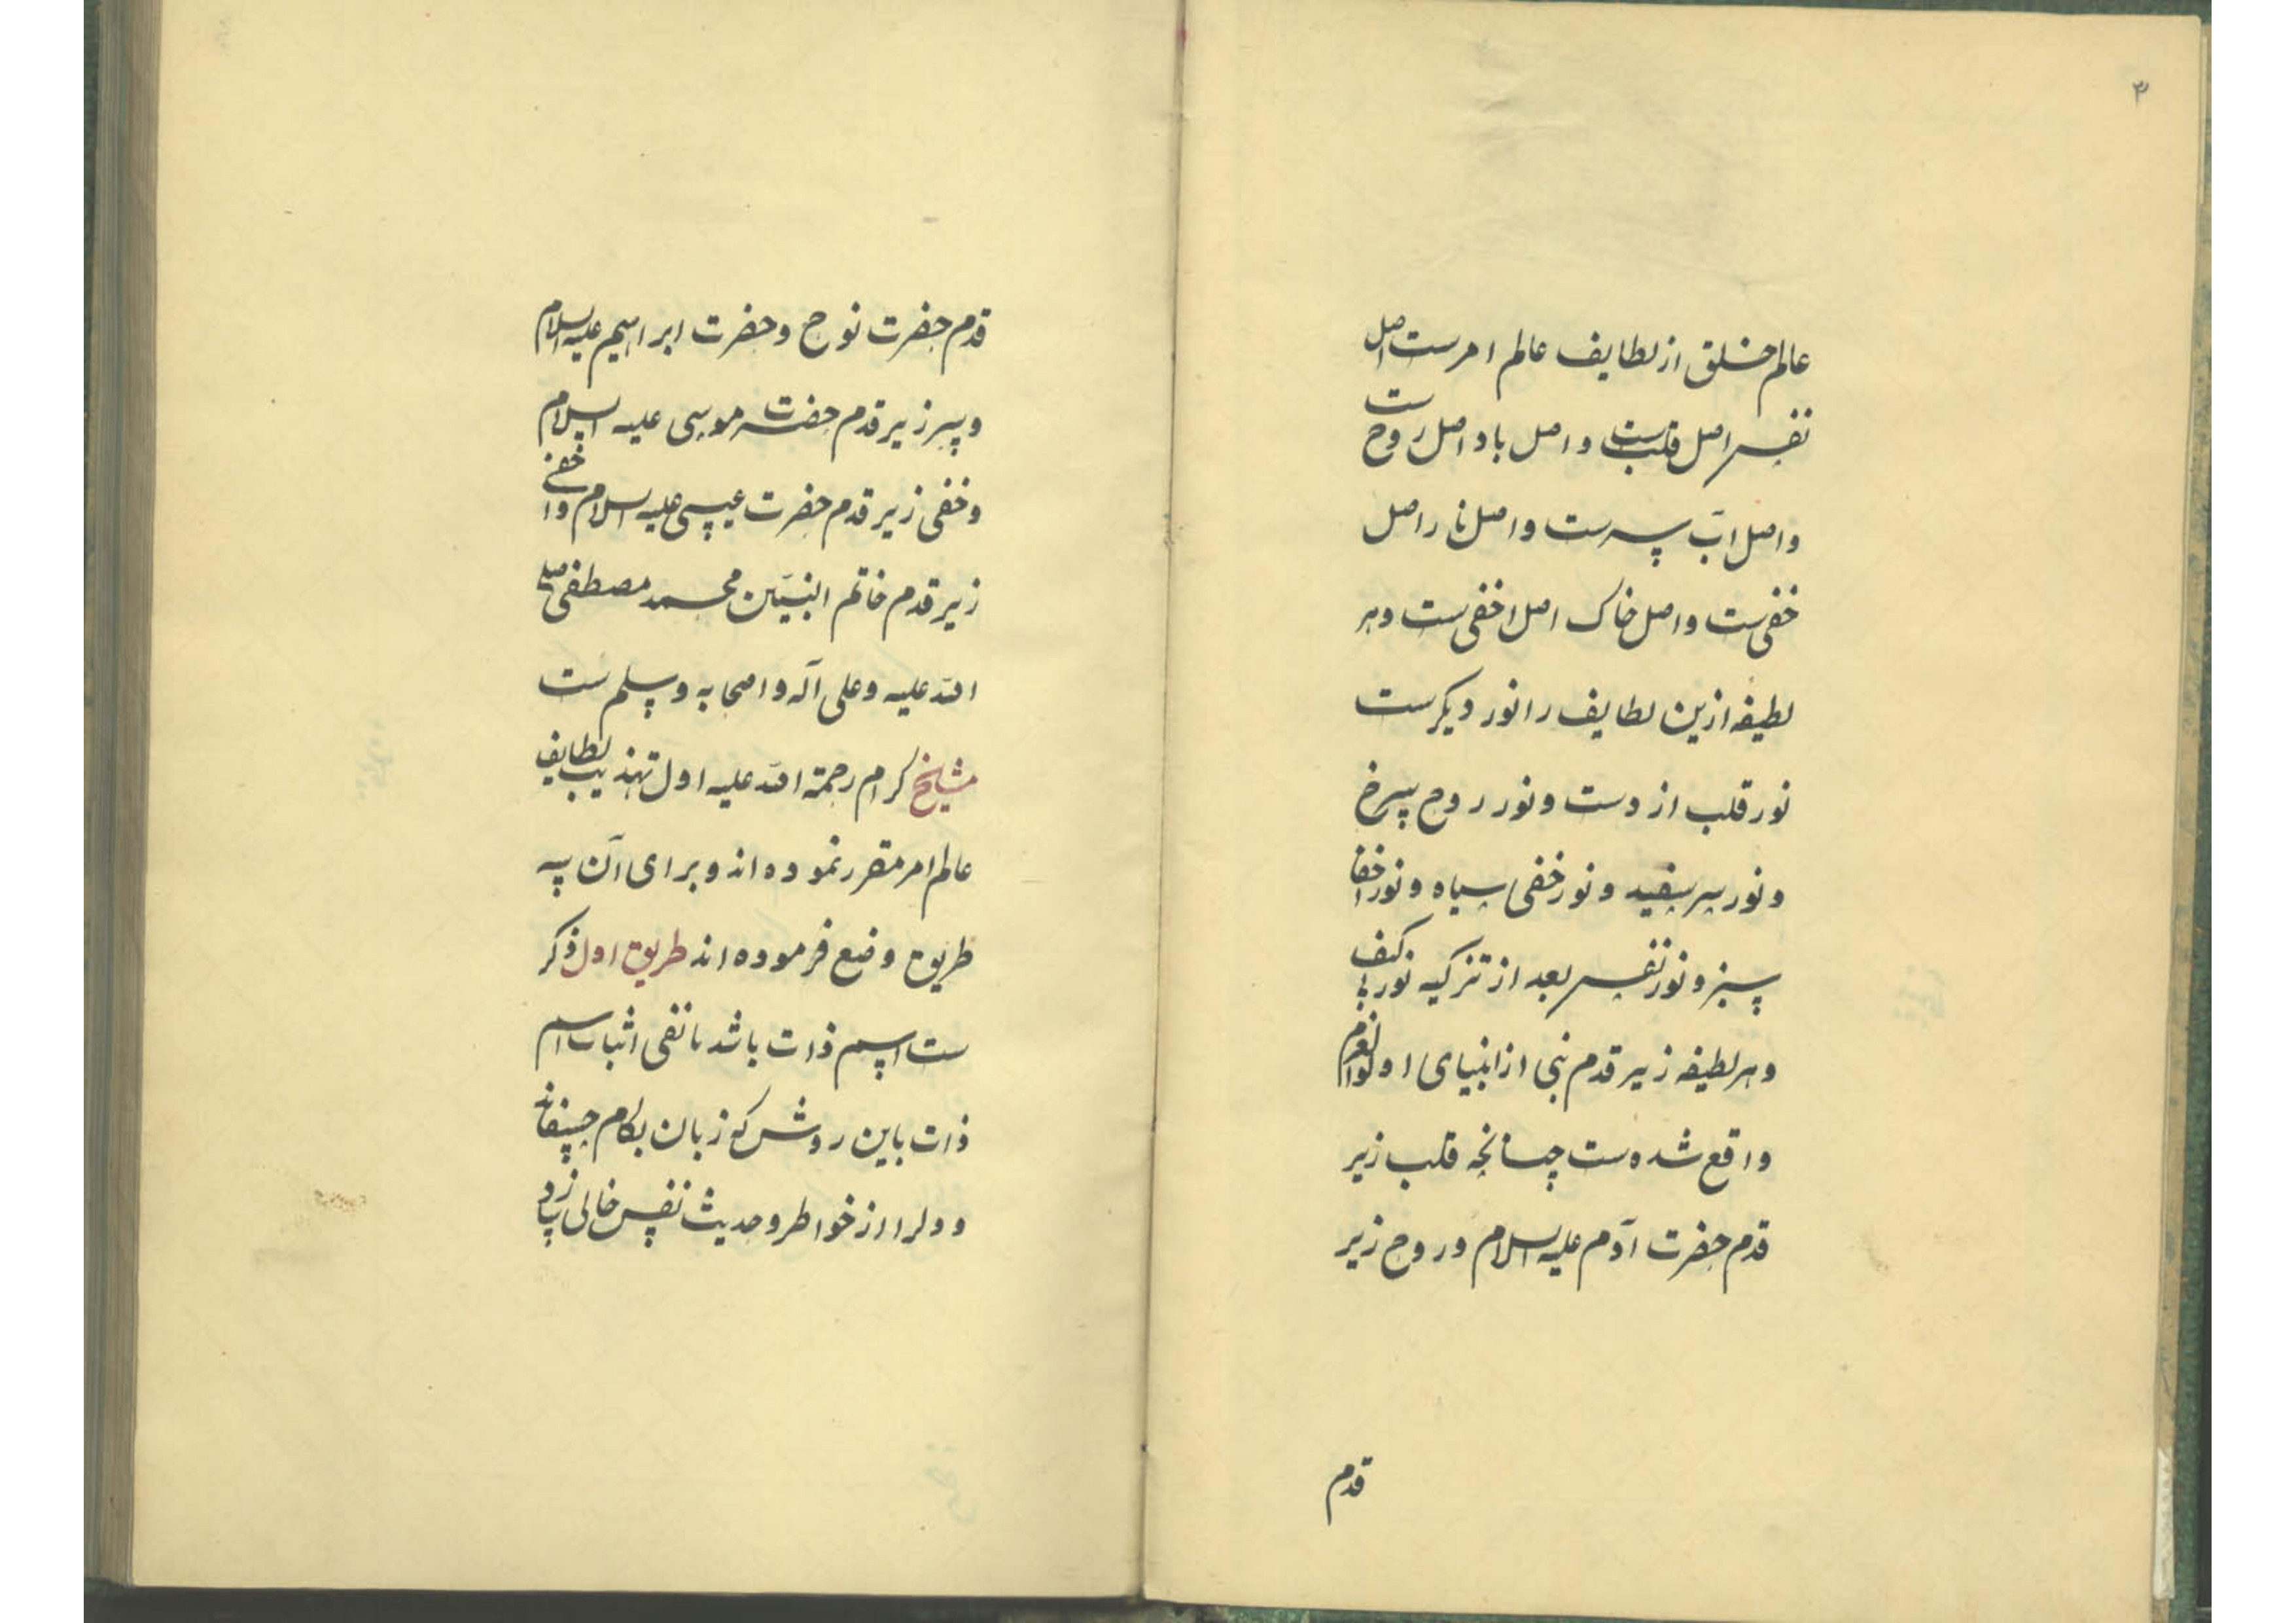 ۳
عالم خلق از لطایف عالم امرست اصل
نفس اصل قلبست و اصل باد اصل روح ست
و اصل آب سرست و اصل نار اصل
خفی ست و اصل خاک اصل اخفی ست و هر
لطیفه ازین لطایف را نور دیکرست
نور قلب زردست و نور روح سرخ
و نور سر سفید و نور خفی سیاه و نور اخفا
سبز و نور نفس بعد از تزکیه نور بی کیف
و هر لطیفه زیر قدم نبی از انبیای اولوالعزم
واقع شده ست چنانچه قلب زیر
قدم حضرت آدم علیه السلام و روح زیر
قدم
قدم حضرت نوح و حضرت ابراهیم علیه السلام
و سر زیر قدم حضرت موسی علیه السلام
و خفی زیر قدم حضرت عیسی علیه السلام و اخفی
زیر قدم خاتم النبیّین محمد مصطفی صلی
الله علیه و علی آله و اصحابه و سلم ست
مشایخ کرام رحمة الله علیه اول تهذیب لطایف
عالم امر مقرر نموده اند و برای آن سه
طریق وضع فرموده اند طریق اول ذکر
ست اسم ذات باشد یا نفی اثبات اسم
ذات باین روش که زبان بکام چسپفاند
و دلرا از خواطر و حدیث نفس خالی سازد